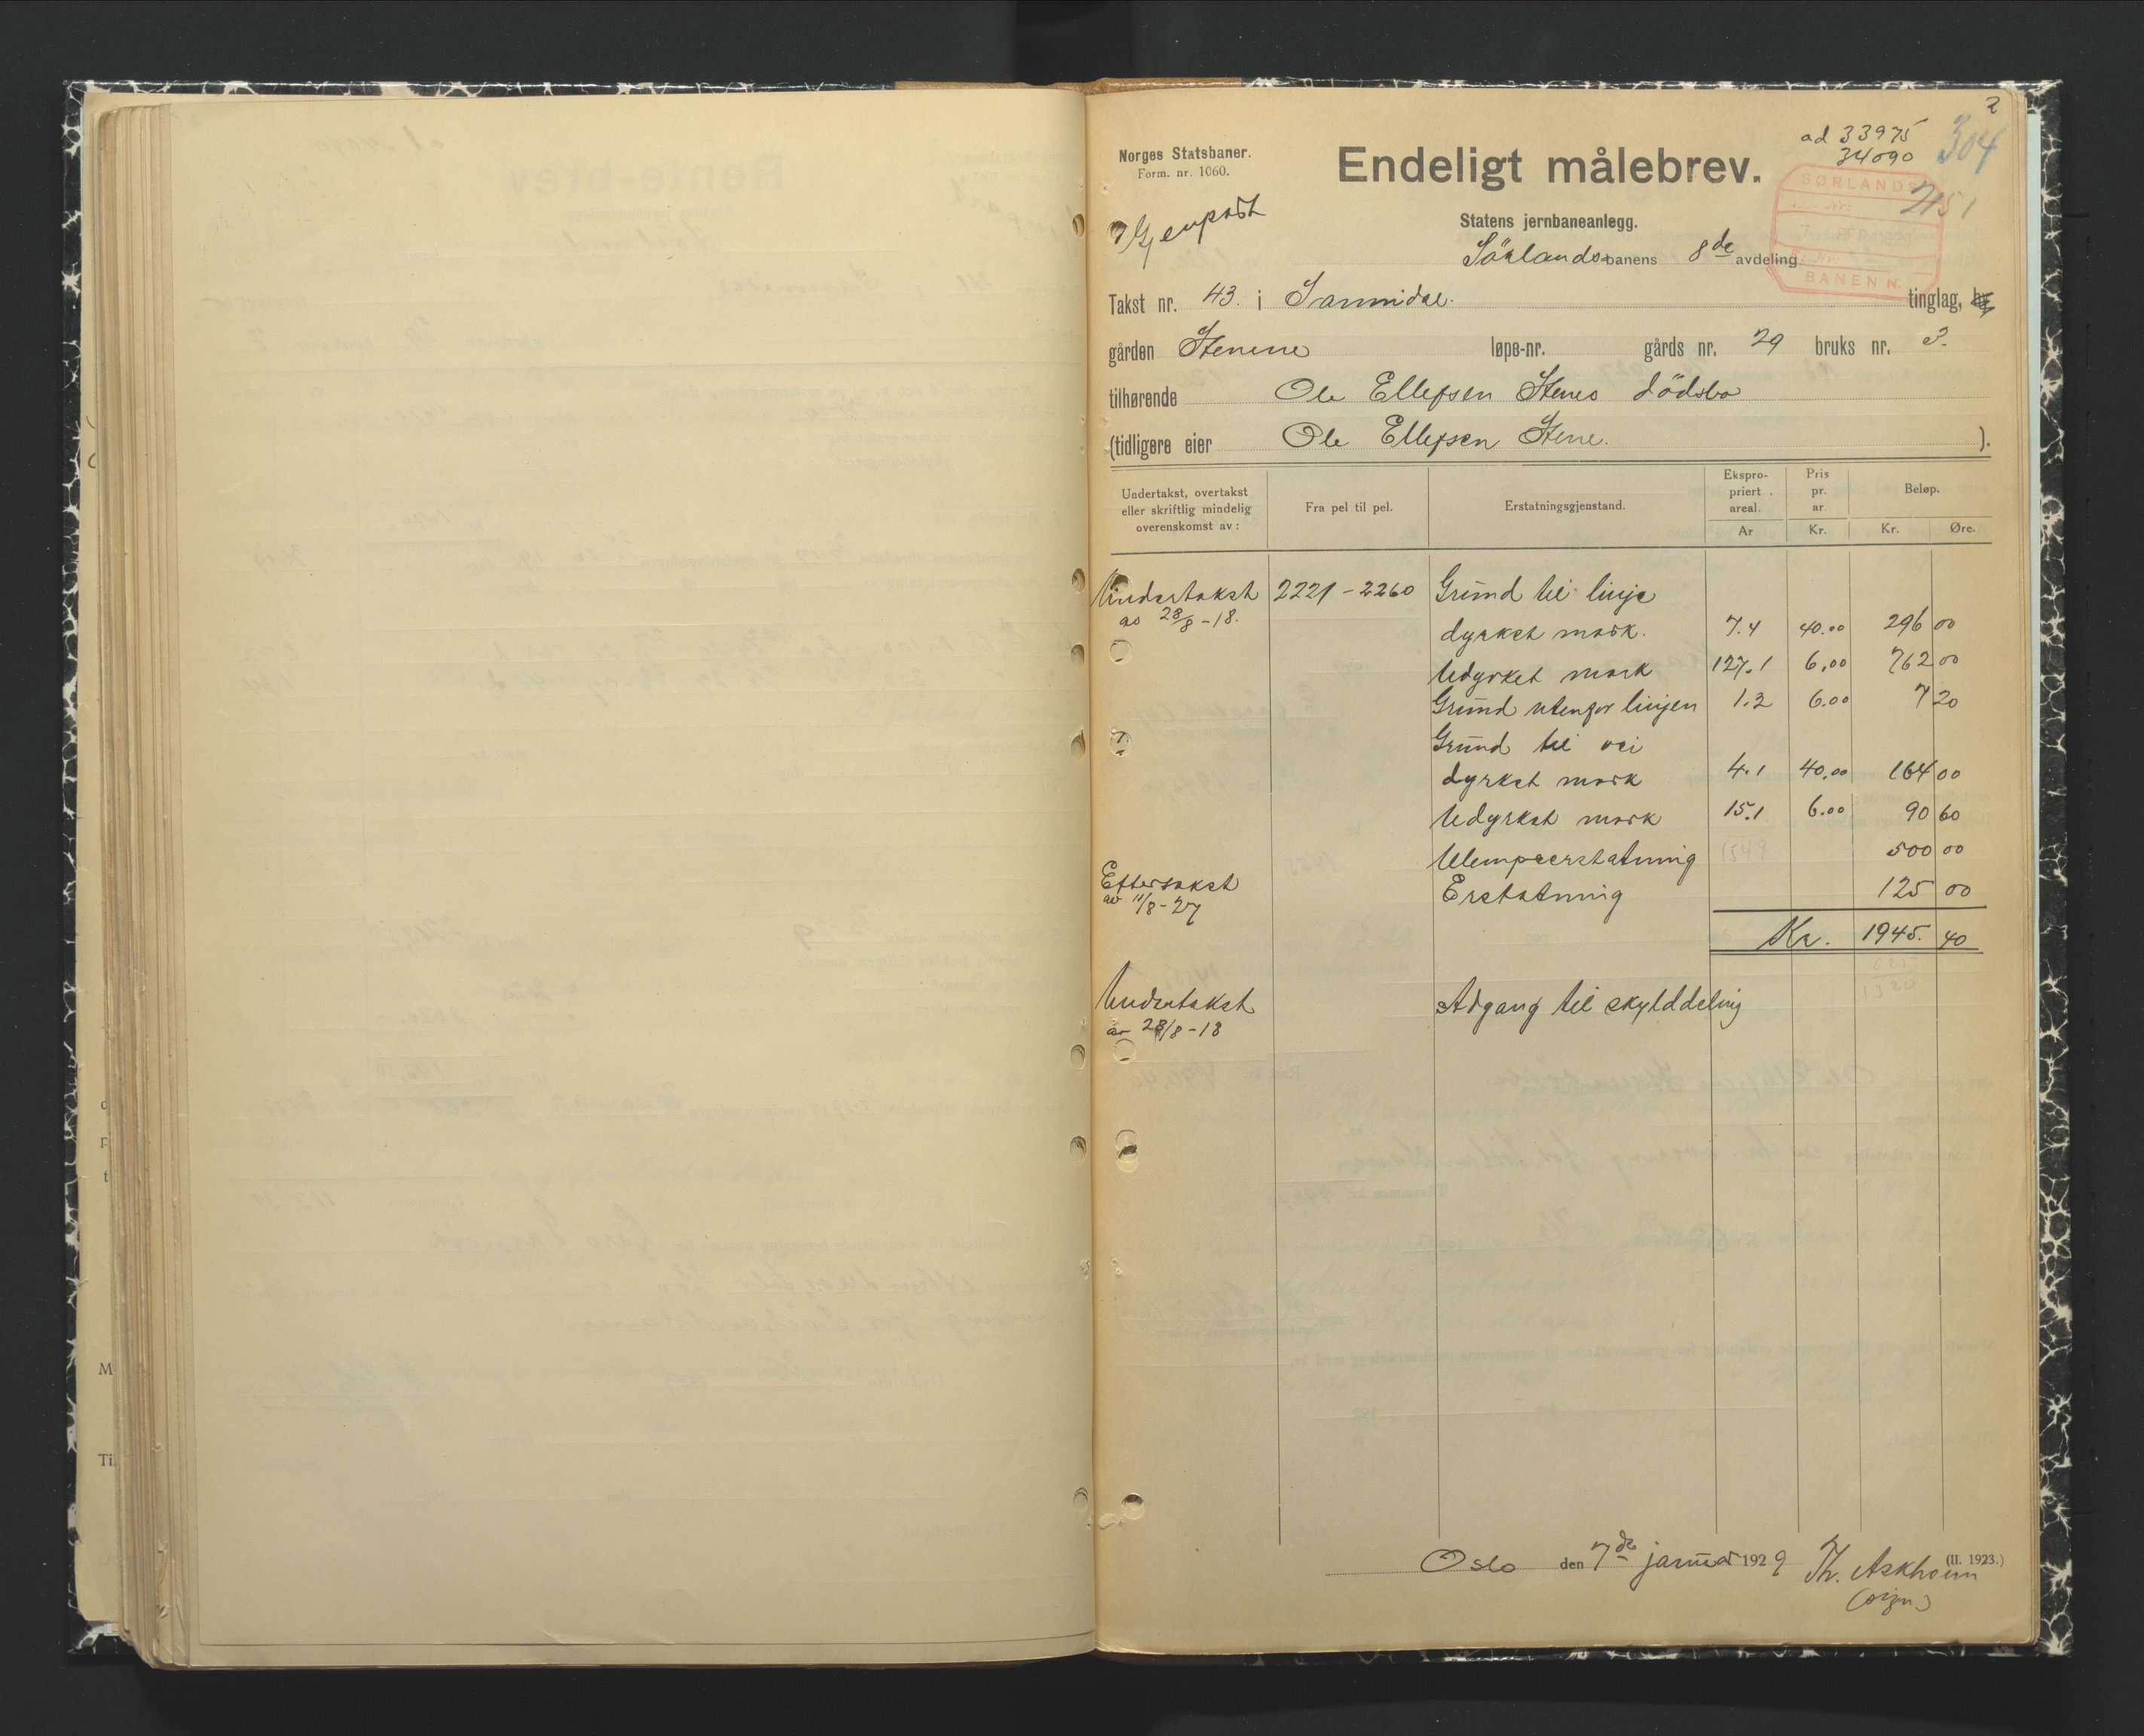 2
ad 33975
34090
304
Norges Statsbaner.
Form. nr. 1060.
Endeligt målebrev.
Gjenpart
SØRLANDS
2151
BANEN N.
Statens jernbaneanlegg.
Sörlandsbanens 8de avdeling
Takst nr. 43. i Sannidal. tinglag,
gården Stenene løpe-nr. gårds nr. 29 bruks nr. 3.
tilhørende Ole Ellefsen Stenes dödsbo
(tidligere eier Ole Ellefsen Stene. ).
Undertakst, overtakst eller skriftlig mindelig overenskomst av: Fra pel til pel. Erstatningsgjenstand. Ekspropriert areal. Ar Pris pr. ar. Kr. Beløp. Kr. Øre.
Undertakst 2221 - 2260 Grund til linje
av 28/8 - 18. dyrket mark. 7.4 40.00 296 00
Udyrket mark 127.1 6.00 762 00
Grund utenfor linjen 1.2 6.00 7 20
Grund til vei
dyrket mark 4.1 40.00 164 00
Udyrket mark 15.1 6.00 90 60
Ulempeerstatning 500 00
Eftertakst Erstatning 125 00
av 11/8 - 27
Kr. 1945. 40
Undertakst Adgang til skylddeling
av 28/8 - 18
Oslo den 7de januar 1929 Th. Askholm
(sign)
(II. 1923.)